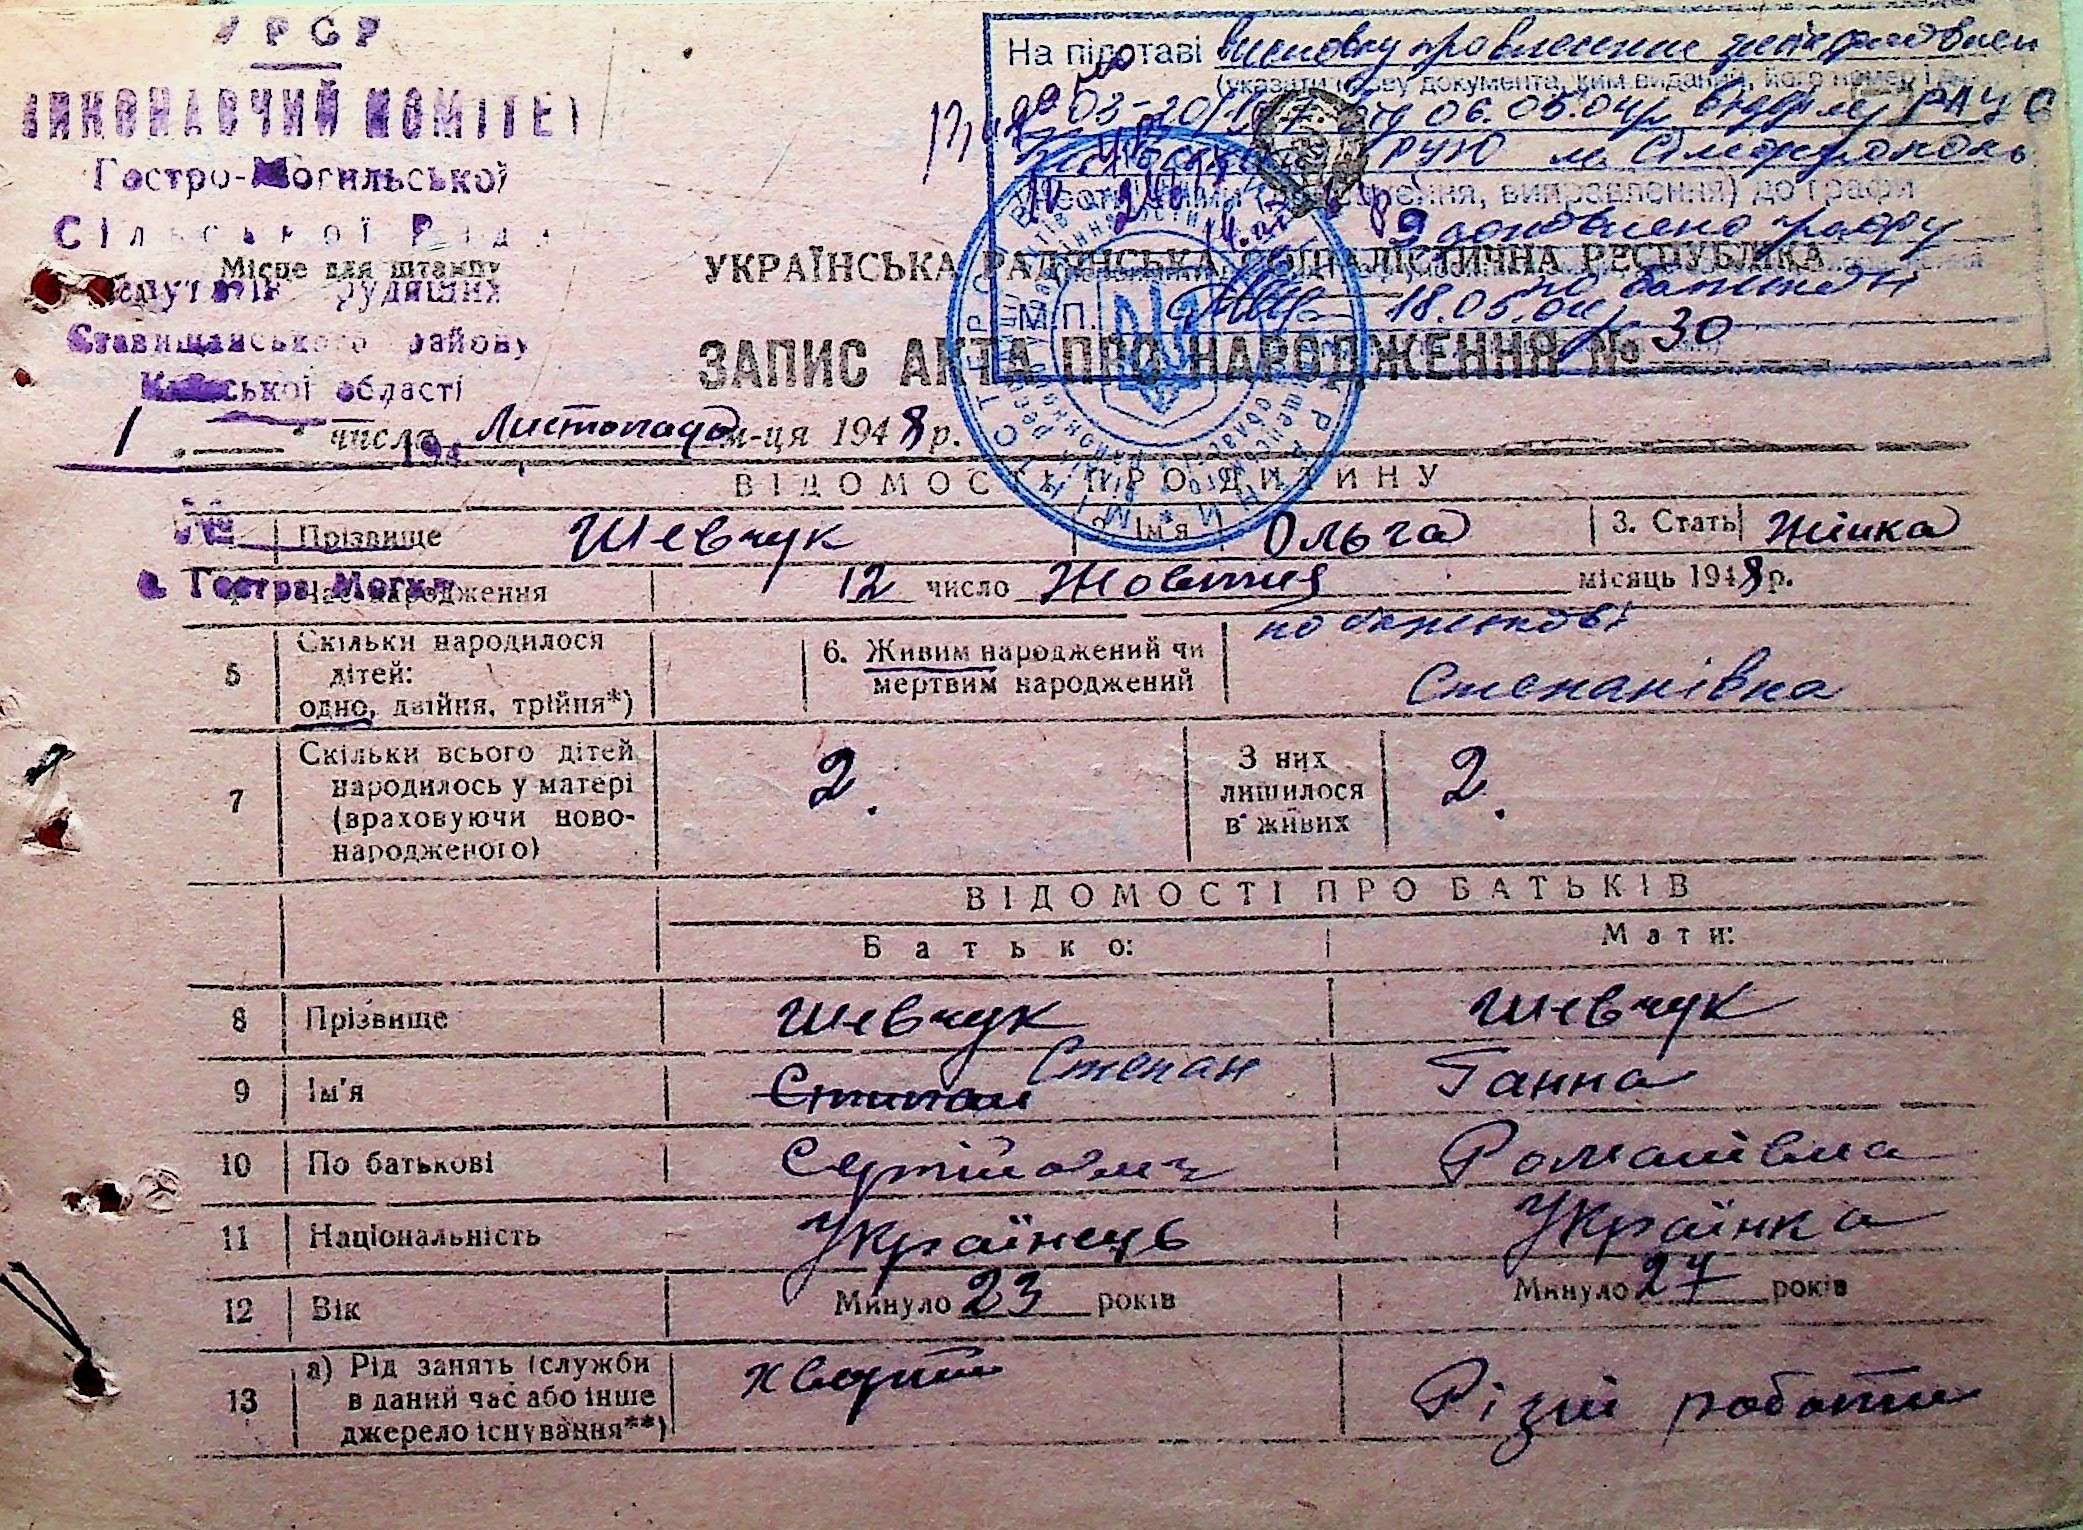 УРСР
ВИКОНАВЧИЙ КОМІТЕТ
Гостро-Могильської
Сільської Ради
Місце для штампу
депутатів трудящих
Ставищанського району
Київської області
На підставі висновку про внесення змін
(указати назву документа, ким виданий, його номер і
03-20/ від 06.05.04р відділу РАЦС
РУЮ м Сімферополь
внести зміни (доповнення, виправлення) до графи
9 доповнено графу
по батькові
М.П. 18.05.04р
УКРАЇНСЬКА РАДЯНСЬКА СОЦІАЛІСТИЧНА РЕСПУБЛІКА
ЗАПИС АКТА ПРО НАРОДЖЕННЯ № 30
1 число Листопада м-ця 1948 р.
194
ВІДОМОСТІ ПРО ДИТИНУ
Прізвище Шевчук 2. Ім'я Ольга 3. Стать Жінка
с. Гостра Могил
4 Час народження 12 число Жовтня місяць 1948 р.
5 Скільки народилося дітей: одно, двійня, трійня*) 6. Живим народжений чи мертвим народжений по батькові Степанівна
7 Скільки всього дітей народилось у матері (враховуючи ново-народженого) 2. З них лишилося в живих 2.
ВІДОМОСТІ ПРО БАТЬКІВ
Батько: Мати:
8 Прізвище Шевчук Шевчук
9 Ім'я Стипан Степан Ганна
10 По батькові Сергійович Романівна
11 Національність Українець Українка
12 Вік Минуло 23 років Минуло 27 років
13 а) Рід занять (служби в даний час або інше джерело існування**) Різні роботи